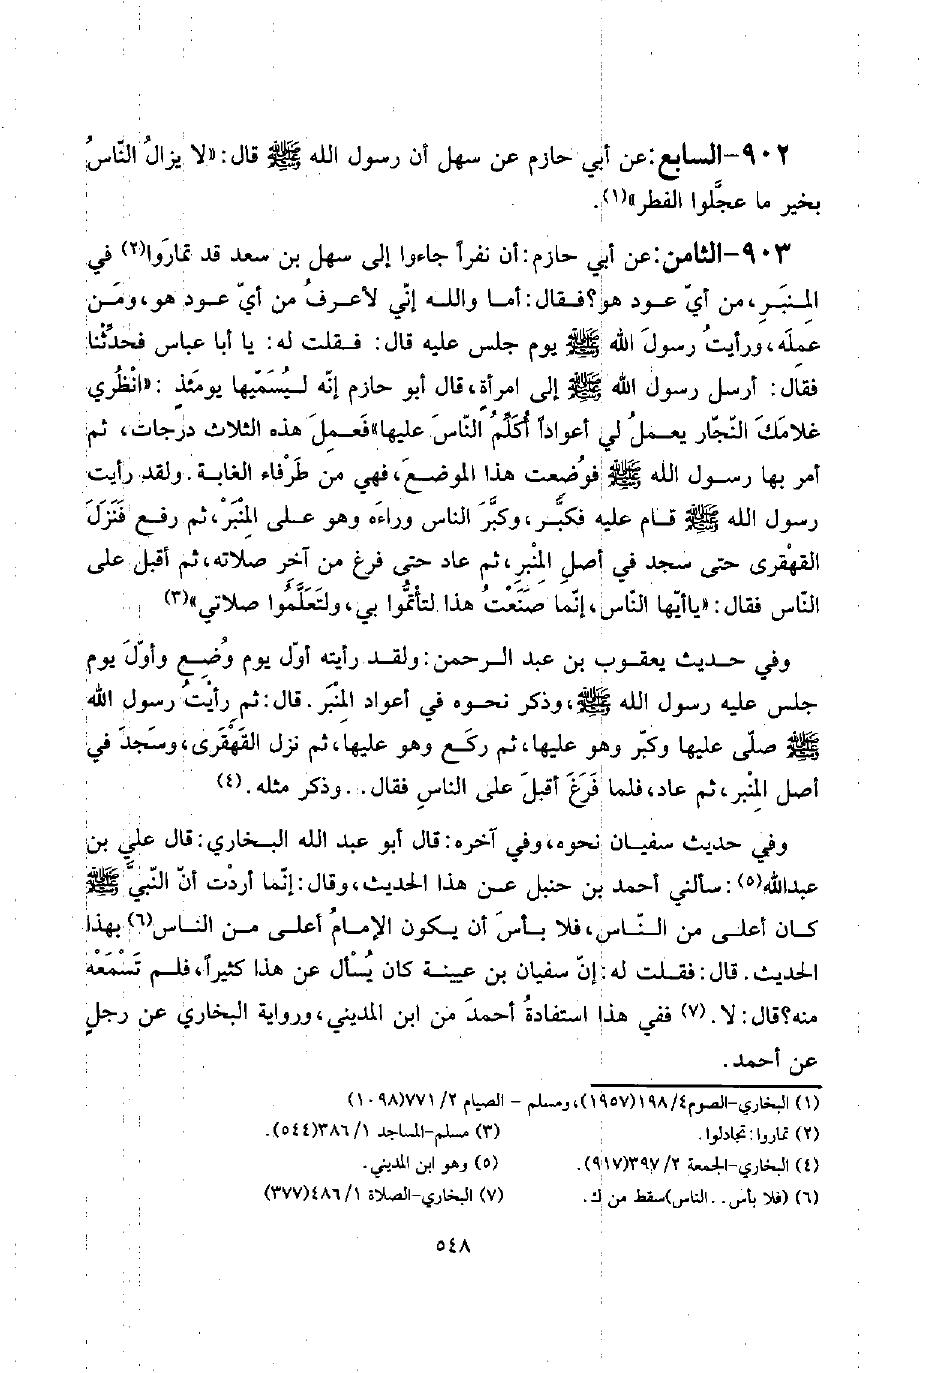 ٩٠٢-السابع:عن أبي حازم عن سهل أن رسول الله ﷺ قال: «لا يزالُ النّاسُ
بخير ما عجَّلوا الفطر»(١).
٩٠٣-الثامن:عن أبي حازم: أن نفراً جاءوا إلى سهل بن سعد قد تمارَوا(٢) في
المِنبَرِ، من أيّ عود هو؟فـقـال: أمـا واللـه إنّي لأعرفُ من أيّ عـود هو، ومَـن
عمِله، ورأيتُ رسولَ الله ﷺ يوم جلس عليه قال: فـقـلت له: يا أبا عباس فحدِّثْنا
فقال: أرسل رسول الله ﷺ إلى امرأة، قال أبو حازم إنّه ليُسَمّيها يومئذٍ: «انْظُري
غلامَكَ النّجّار يعمـلُ لي أعواداً أُكَلِّمُ النّاسَ عليها»فعـمِلَ هذه الثلاث درجات، ثم
أمر بها رسـول الله ﷺ فوُضعت هذا الموضعَ، فهي من طَرْفاء الغابة. ولقد رأيت
رسول الله ﷺ قـام عليه فكبَّر، وكبَّرَ الناس وراءَه وهو علـى المِنْبَرْ، ثم رفع فَنَزَلَ
القهْقرى حتى سجد في أصلِ المِنْبر، ثم عاد حتى فرغ من آخرِ صلاته، ثم أقبل على
النّاس فقال: «ياأيّها النّاس، إنّما صَنَعْتُ هذا لتأتمُّوا بي، ولتَعَلَّمُوا صلاتي»(٣)
وفي حـديث يعقـوب بن عبد الـرحمن: ولقـد رأيته أوّل يوم وُضِـع وأوّلَ يوم
جلس عليه رسول الله ﷺ، وذكر نحـوه في أعواد المِنْبَر. قال: ثم رأيْتُ رسول الله
ﷺ صلّى عليها وكبّر وهو عليها، ثم ركَـع وهو عليها، ثم نزل القَهْقَرى، وسَجدَ في
أصل المِنْبر، ثم عاد، فلما فَرَغَ أقبلَ على الناسِ فقال.. وذكر مثله. (٤)
وفي حديث سفيـان نحوه، وفي آخره: قال أبو عبد الله البـخاري: قال علي بن
عبدالله(٥): سألني أحمد بن حنبل عـن هذا الحديث، وقال: إنّما أردْت أنّ النّبيَّ ﷺ
كـان أعلـى من الـنّـاس، فلا بـأسَ أن يـكون الإمـامُ أعلى مـن النـاس(٦) بهذا
الحديث. قال: فقلـت له: إنّ سفيان بن عيينة كان يُسْأل عن هذا كثيراً، فلـم تَسْمَعْه
منه؟قال: لا. (٧) ففي هذا استفادةُ أحمدَ من ابن المديني، ورواية البخاري عن رجلٍ
عن أحمد.
(١) البخاري-الصوم٤/ ١٩٨(١٩٥٧)، ومسلم - الصيام ٢/ ٧٧١(١٠٩٨)
(٢) تماروا: تجادلوا. (٣) مسلم-المساجد ١/ ٣٨٦(٥٤٤).
(٤) البخاري-الجمعة ٢/ ٣٩٧(٩١٧). (٥) وهو ابن المديني.
(٦) (فلا بأس..الناس)سقط من ك. (٧) البخاري-الصلاة ١/ ٤٨٦(٣٧٧)
٥٤٨